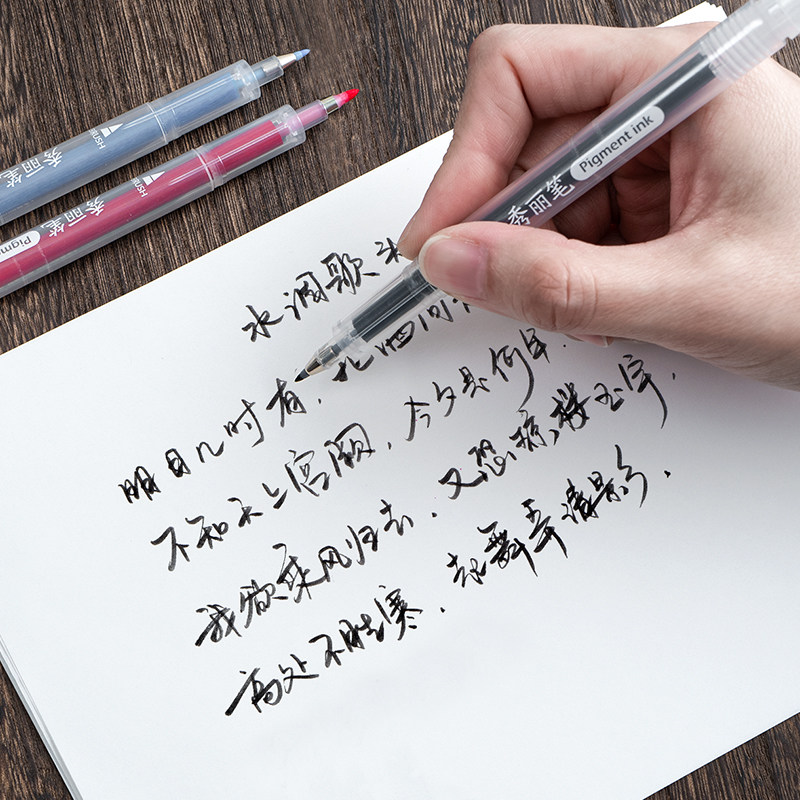 秀丽笔 BRUSH
Pigme 秀丽笔 BRUSH
秀丽笔 Pigment ink
水调歌头
明月几时有,把酒问
不知天上宫阙,今夕是何年.
我欲乘风归去,又恐琼楼玉宇,
高处不胜寒,起舞弄清影,